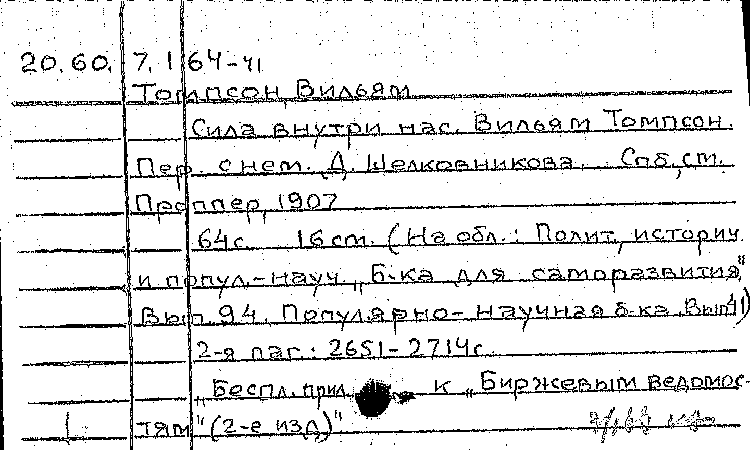 20.60.7.1 64-41
Томпсон, Вильям
Сила внутри нас. Вильям Томпсон.
Пер. с нем. Д. Шелковникова. Спб, ст.
Проппер, 1907
64с. 16 см. (На обл.: Полит., историч
и попул.-науч. „Б-ка для саморазвития"
Вып. 94. Популярно-научная б-ка. Вып. 41)
2-я паг.: 2651-2714с.
„Беспл. прил. к „Биржевым ведомос-
тям" (2-е изд)"